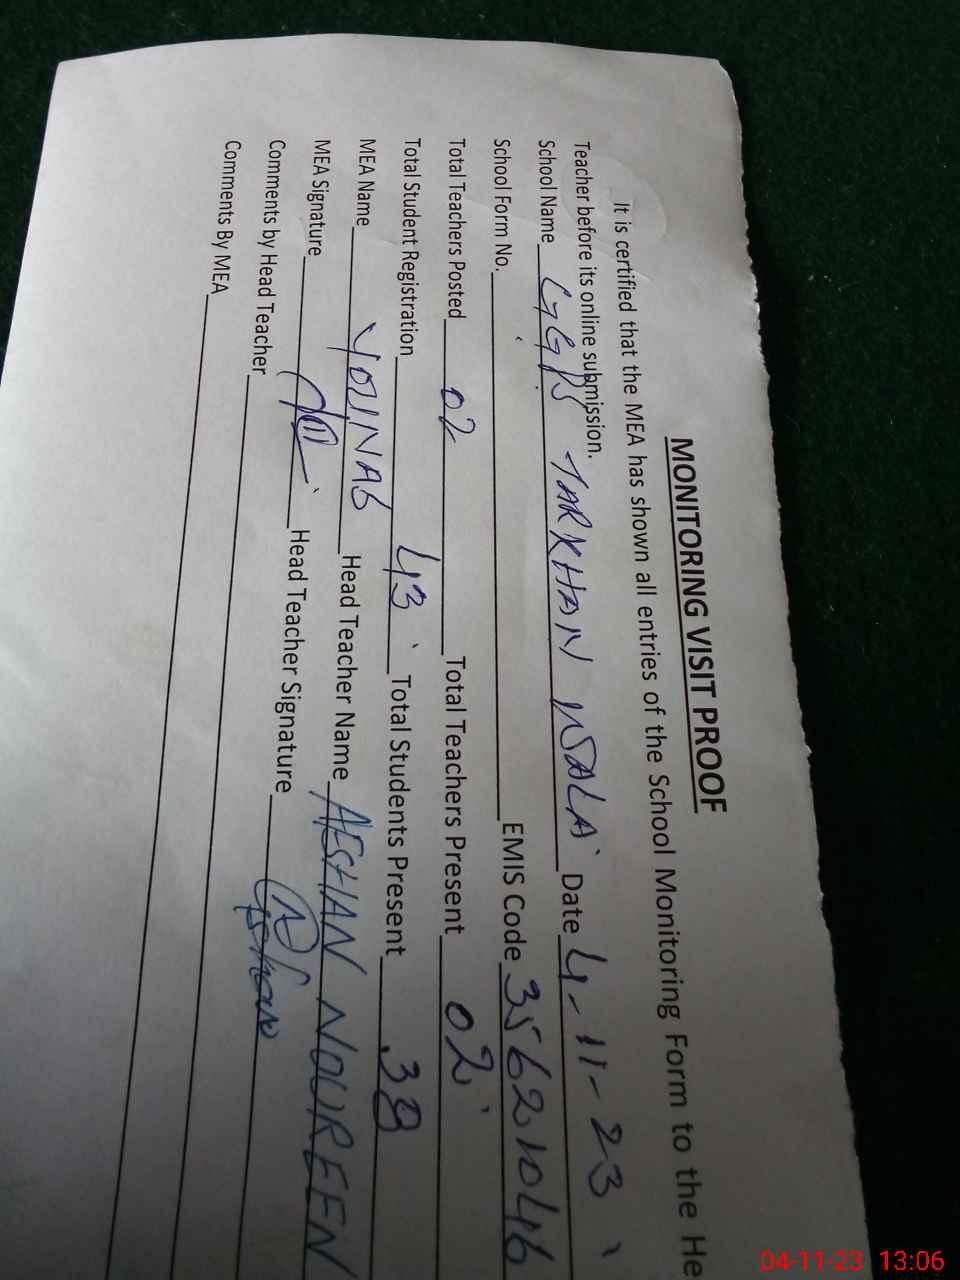 MONITORING VISIT PROOF
It is certified that the MEA has shown all entries of the School Monitoring Form to the He
Teacher before its online submission.
School Name GGPS TARKHAN WALA Date 4-11-23
School Form No. EMIS Code 35621046
Total Teachers Posted 02 Total Teachers Present 02
Total Student Registration 43 Total Students Present 38
MEA Name YOUNAS Head Teacher Name AFSHAN NOUREEN
MEA Signature Head Teacher Signature Afshan
Comments by Head Teacher
Comments By MEA
04-11-23 13:06